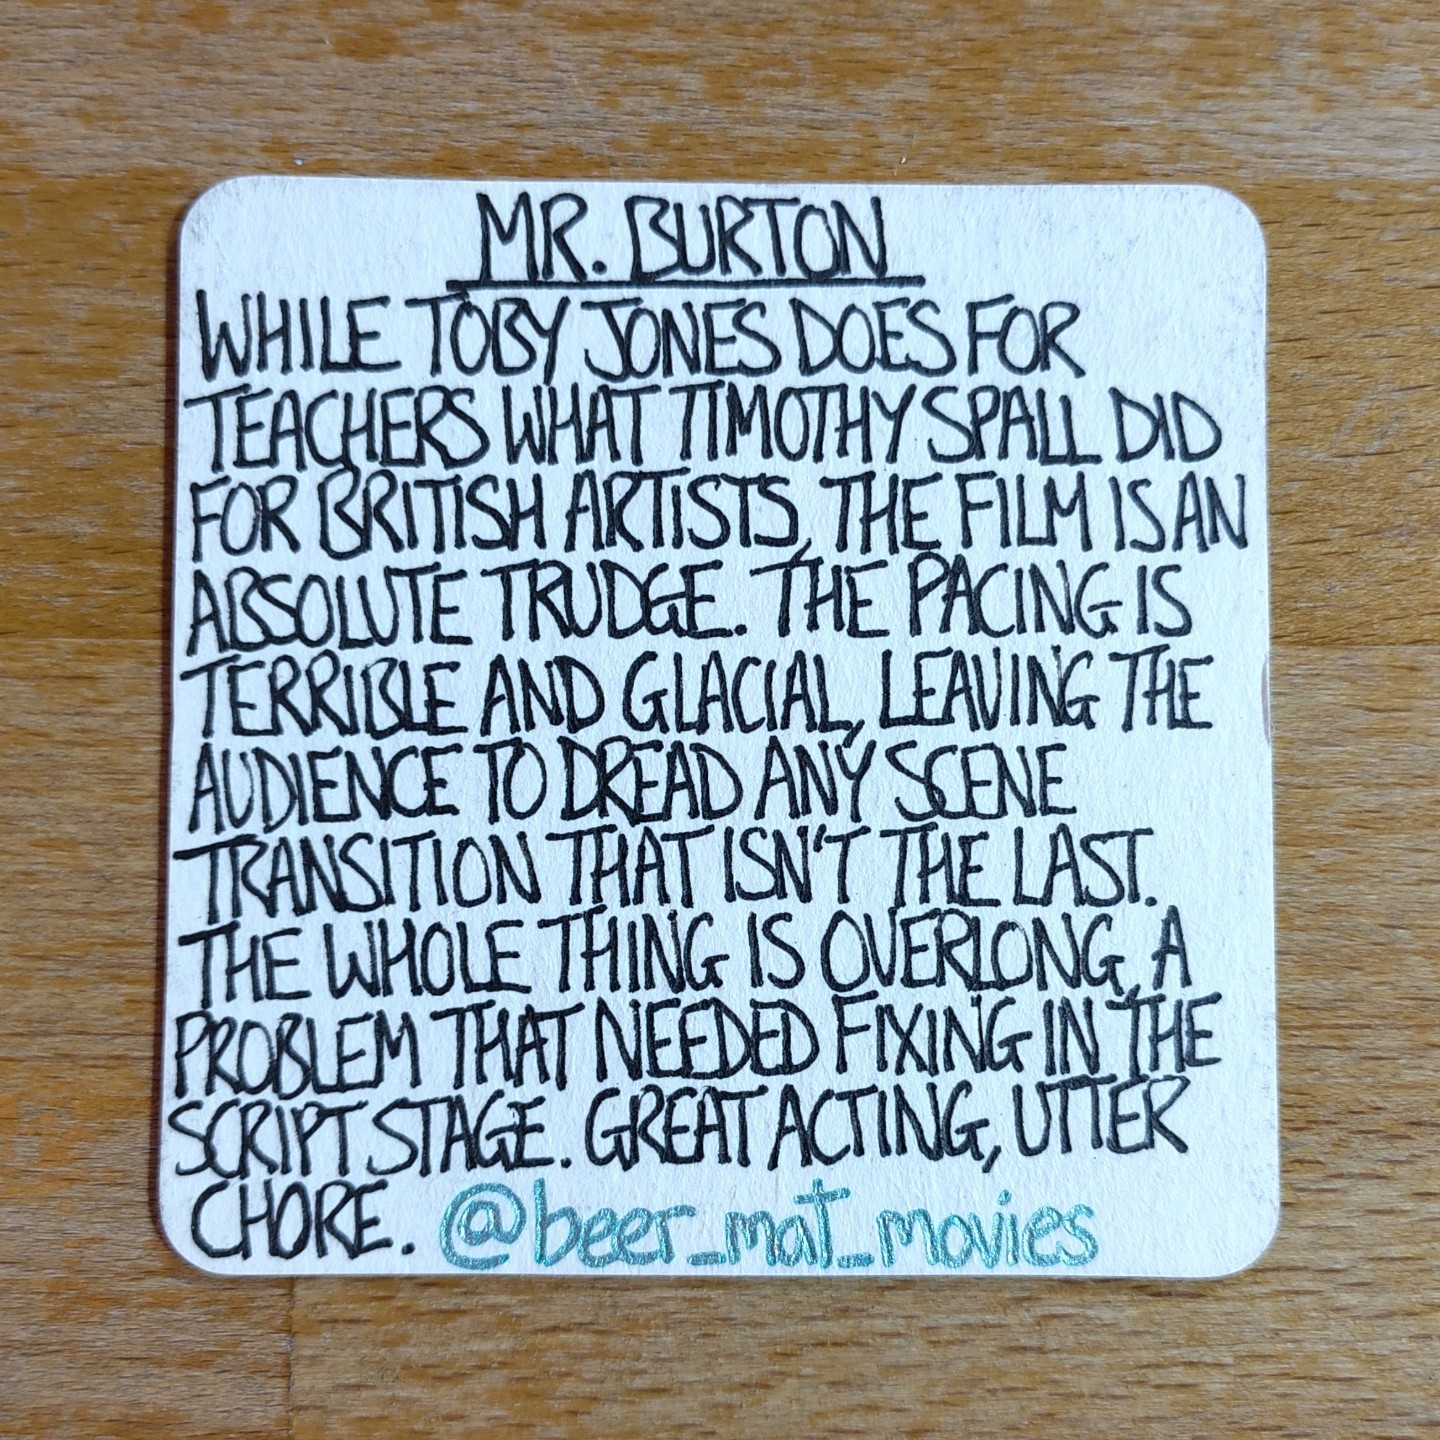 MR. BURTON
WHILE TOBY JONES DOES FOR
TEACHERS WHAT TIMOTHY SPALL DID
FOR BRITISH ARTISTS, THE FILM IS AN
ABSOLUTE TRUDGE. THE PACING IS
TERRIBLE AND GLACIAL, LEAVING THE
AUDIENCE TO DREAD ANY SCENE
TRANSITION THAT ISN'T THE LAST.
THE WHOLE THING IS OVERLONG, A
PROBLEM THAT NEEDED FIXING IN THE
SCRIPT STAGE. GREAT ACTING, UTTER
CHORE. @beer_mat_movies